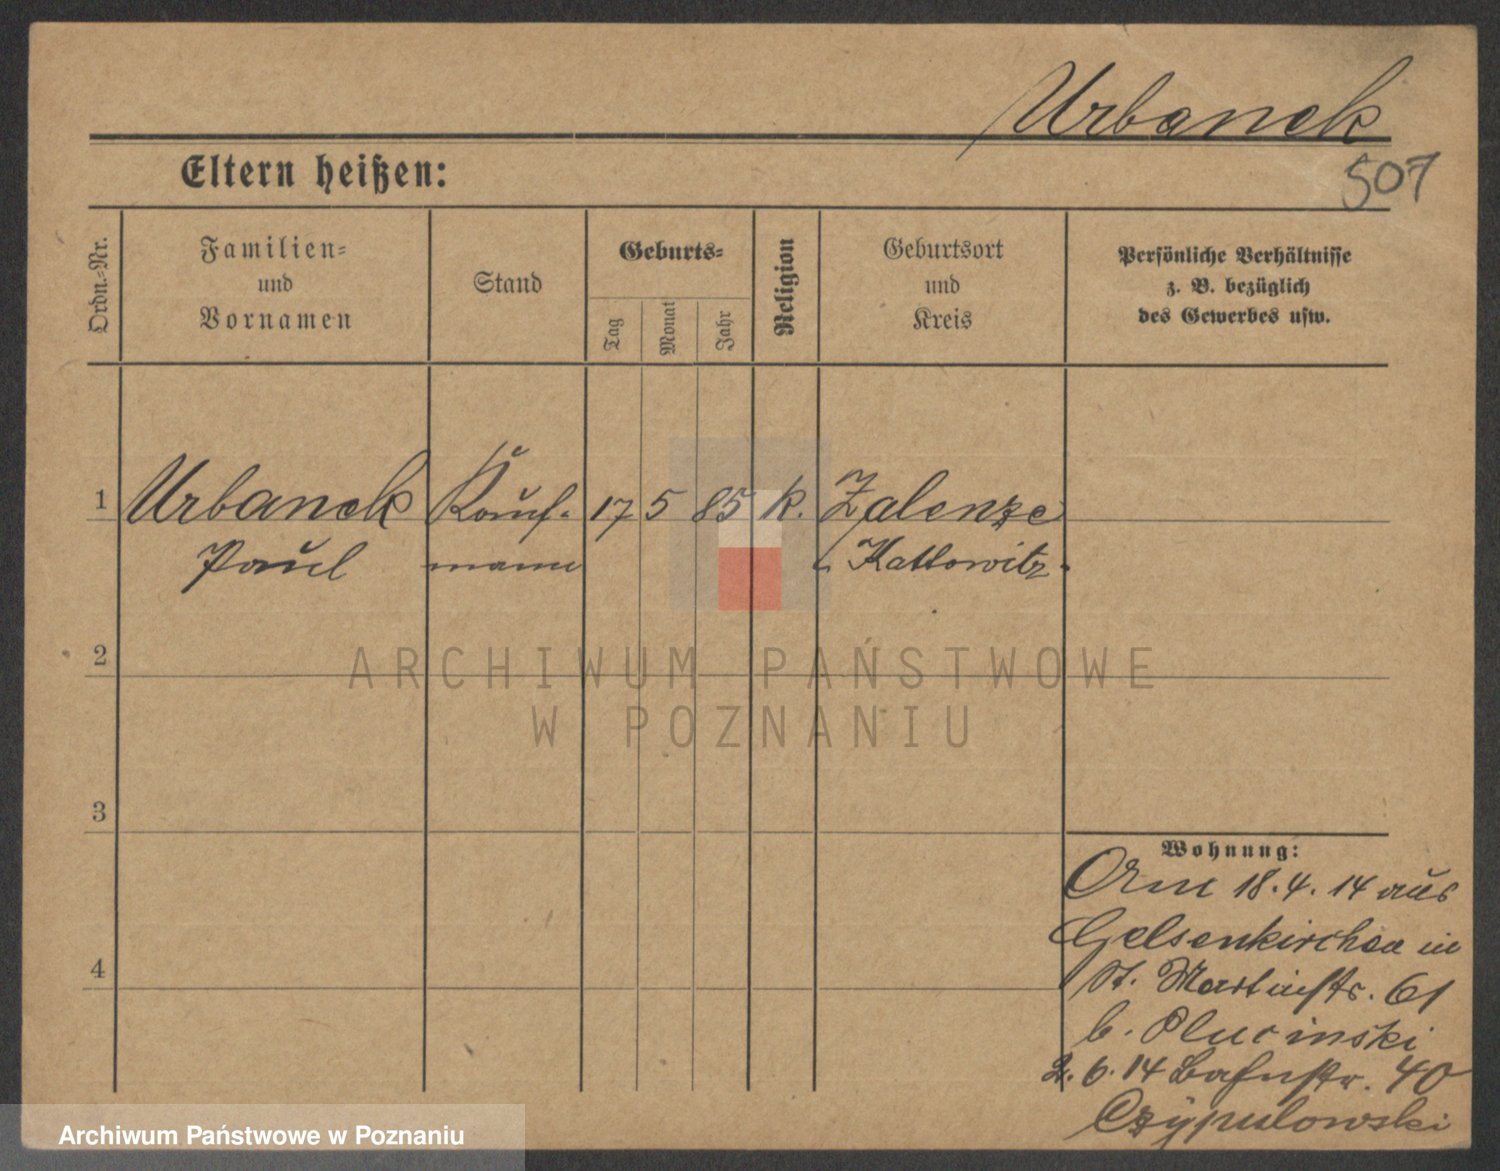 Urbanek
507
Eltern heißen:
Ordn.-Nr.
Familien- und Vornamen
Stand
Geburts-
Tag
Monat
Jahr
Religion
Geburtsort und Kreis
Persönliche Verhältnisse
z. B. bezüglich
des Gewerbes usw.
1 Urbanek Kauf- 17 5 85 k. Zalenze
Paul mann Kattowitz
2
ARCHIWUM PAŃSTWOWE
W POZNANIU
3
Wohnung:
18.4.14 aus
Gelsenkirchen in
4
St. Martinstr. 61
b. Plucinski
2.6.14 Bahnstr. 40
Czypulowski
Archiwum Państwowe w Poznaniu